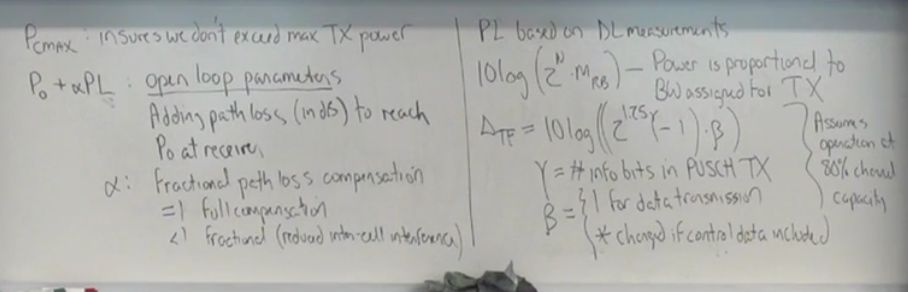 P_CMAX : insures we don't exceed max TX power
P₀ + αPL : open loop parameters
Adding path loss (in dB) to reach
P₀ at receiver
α: Fractional path loss compensation
=1 full compensation
<1 fractional (reduced inter-cell interference)
PL based on DL measurements
10log(2^μ · M_RB) — Power is proportional to
BW assigned for TX
Δ_TF = 10log((2^1.75γ - 1) · β)
γ = # info bits in PUSCH TX
β = { 1 for data transmission
* changed if control data included
Assumes
operation at
80% channel
capacity